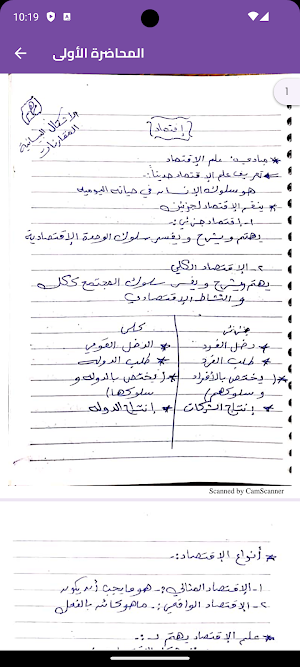 10:19
المحاضرة الأولى
1
مهم
الأشكال البيانية
المقارنات
إقتصاد
مبادئ علم الإقتصاد
تعريف علم الإقتصاد حديثاً:-
هو سلوك الإنسان في حياته اليومية
ينقسم الإقتصاد لجزئين
١- إقتصاد جزئي:-
يهتم ويشرح ويفسر سلوك الوحدة الإقتصادية
٢- الإقتصاد الكلي
يهتم ويشرح ويفسر سلوك المجتمع ككل
و النشاط الإقتصادي
جزئي | كلي
* دخل الفرد | * الدخل القومي
* طلب الفرد | * طلب الدولة
* (يختص بالأفراد | * (يختص بالدولة و
و سلوكهم) | سلوكها)
* إنتاج الشركات | * إنتاج الدولة
Scanned by CamScanner
* أنواع الإقتصاد:-
١- الإقتصاد المثالي:- هو ما يجب أن يكون
٢- الإقتصاد الواقعي:- ما هو كائن بالفعل
* علم الإقتصاد يهتم بـ:-